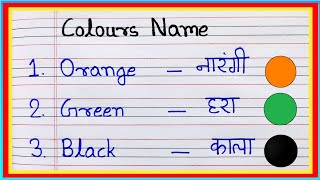 Colours Name
1. Orange – नारंगी
2. Green – हरा
3. Black – काला